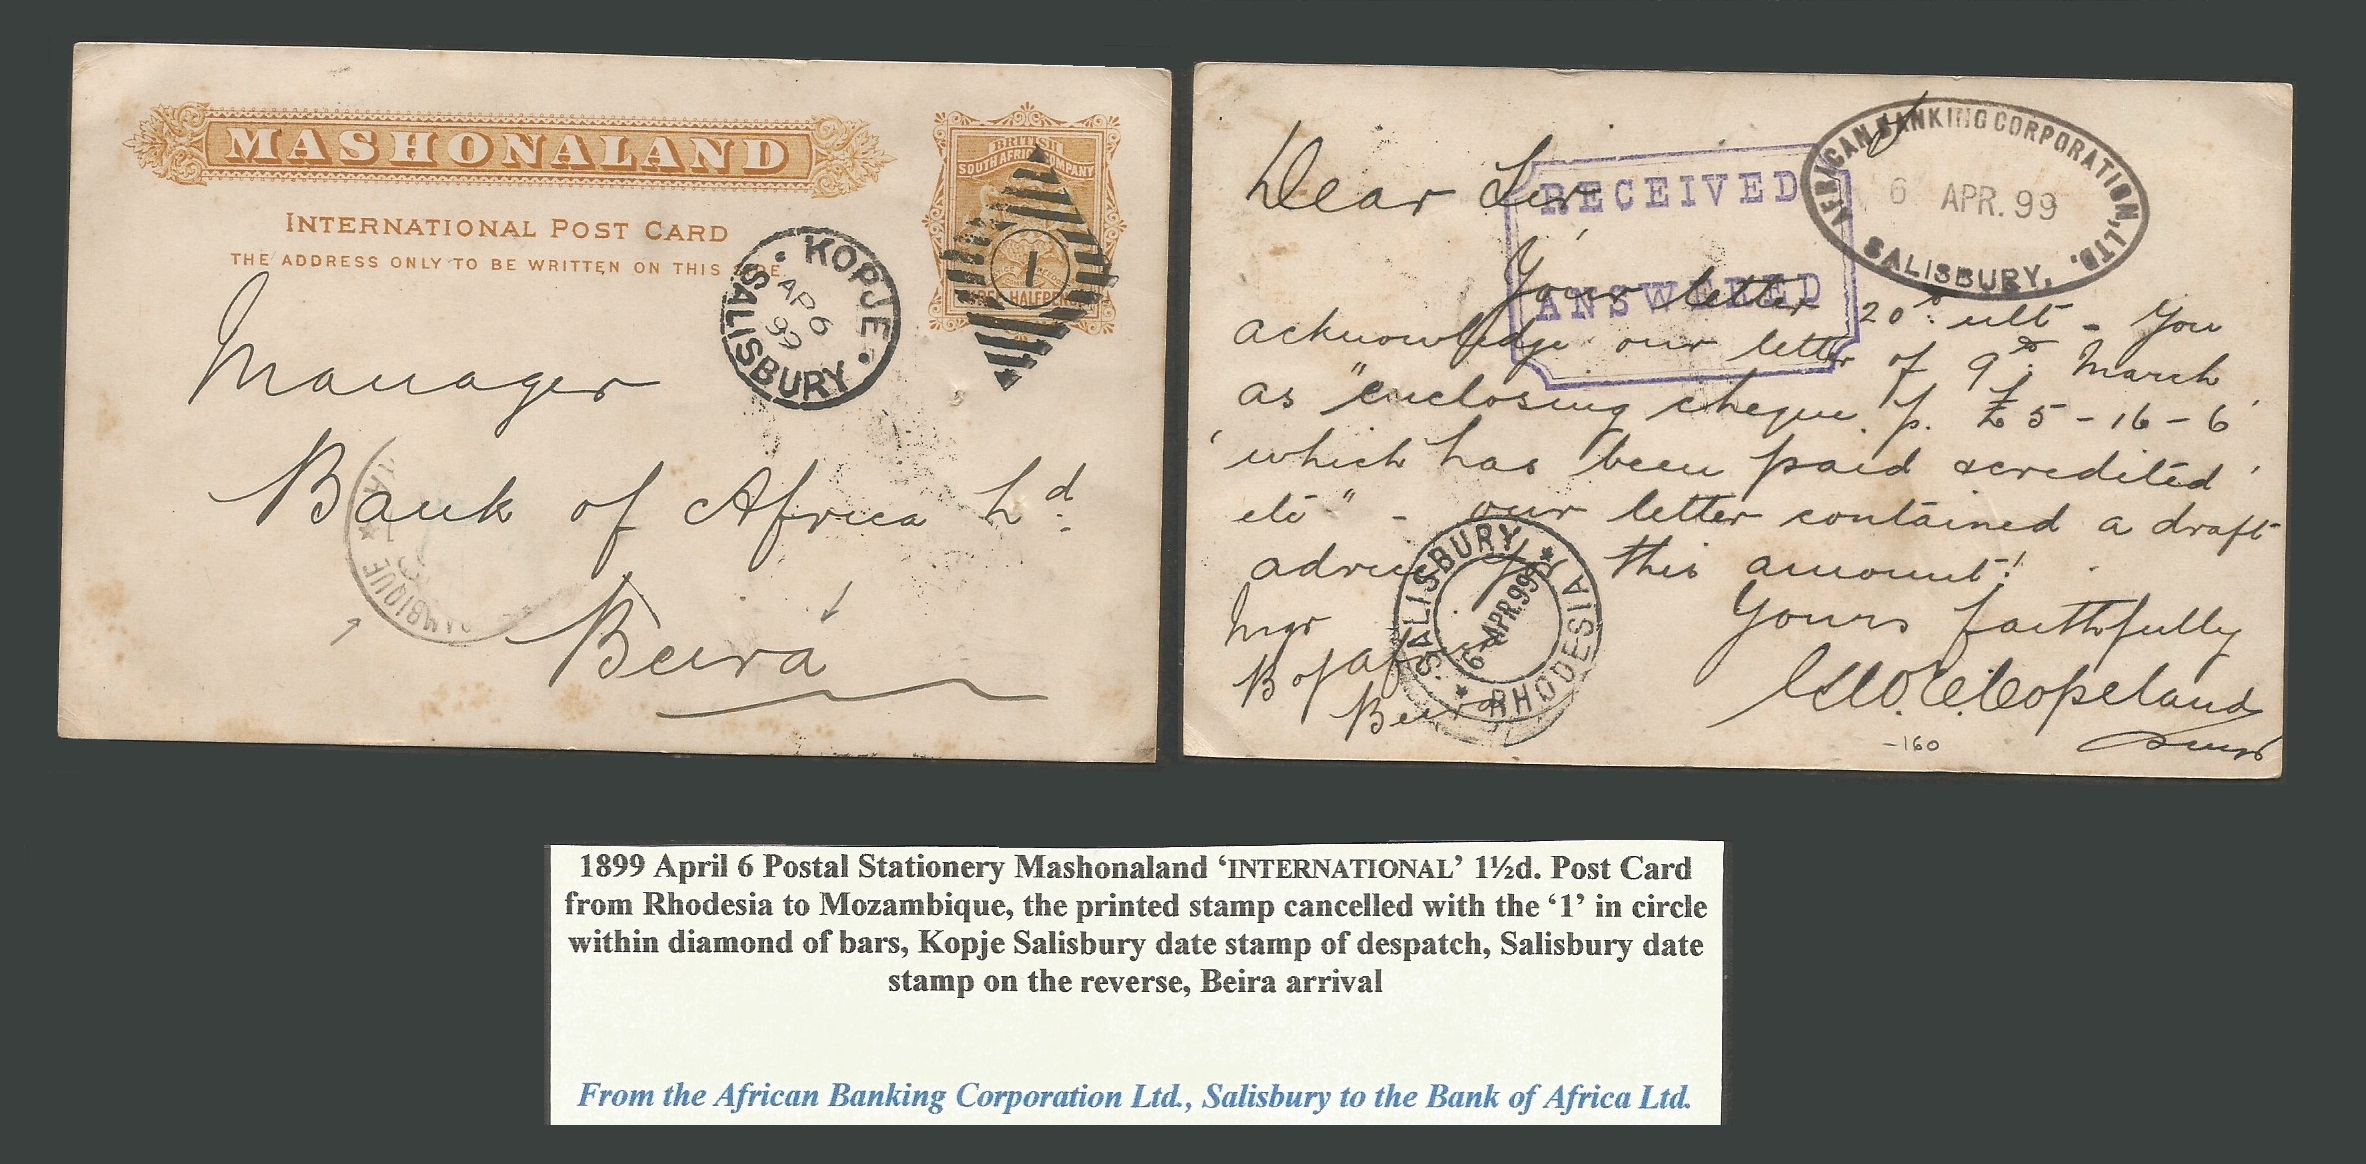 MASHONALAND
INTERNATIONAL POST CARD
THE ADDRESS ONLY TO BE WRITTEN ON THIS
BRITISH
SOUTH AFRICA COMPANY
HALFPENNY
1
KOPJE
AP 6
99
SALISBURY
Manager
Bank of Africa Ld.
Beira
AFRICAN BANKING CORPORATION, LTD.
6 APR. 99
SALISBURY.
RECEIVED
ANSWERED
Dear Sir
Your letter 20th ult - You
acknowledge our letter of 9th March
as "enclosing cheque f. £5-16-6
which has been paid & credited
etc" - our letter contained a draft
advice for this amount!
Yours faithfully
Copeland
Mgr
B of Africa
Beira
SALISBURY
6 APR. 99
RHODESIA
-160
1899 April 6 Postal Stationery Mashonaland ‘INTERNATIONAL’ 1½d. Post Card
from Rhodesia to Mozambique, the printed stamp cancelled with the ‘1’ in circle
within diamond of bars, Kopje Salisbury date stamp of despatch, Salisbury date
stamp on the reverse, Beira arrival
From the African Banking Corporation Ltd., Salisbury to the Bank of Africa Ltd.